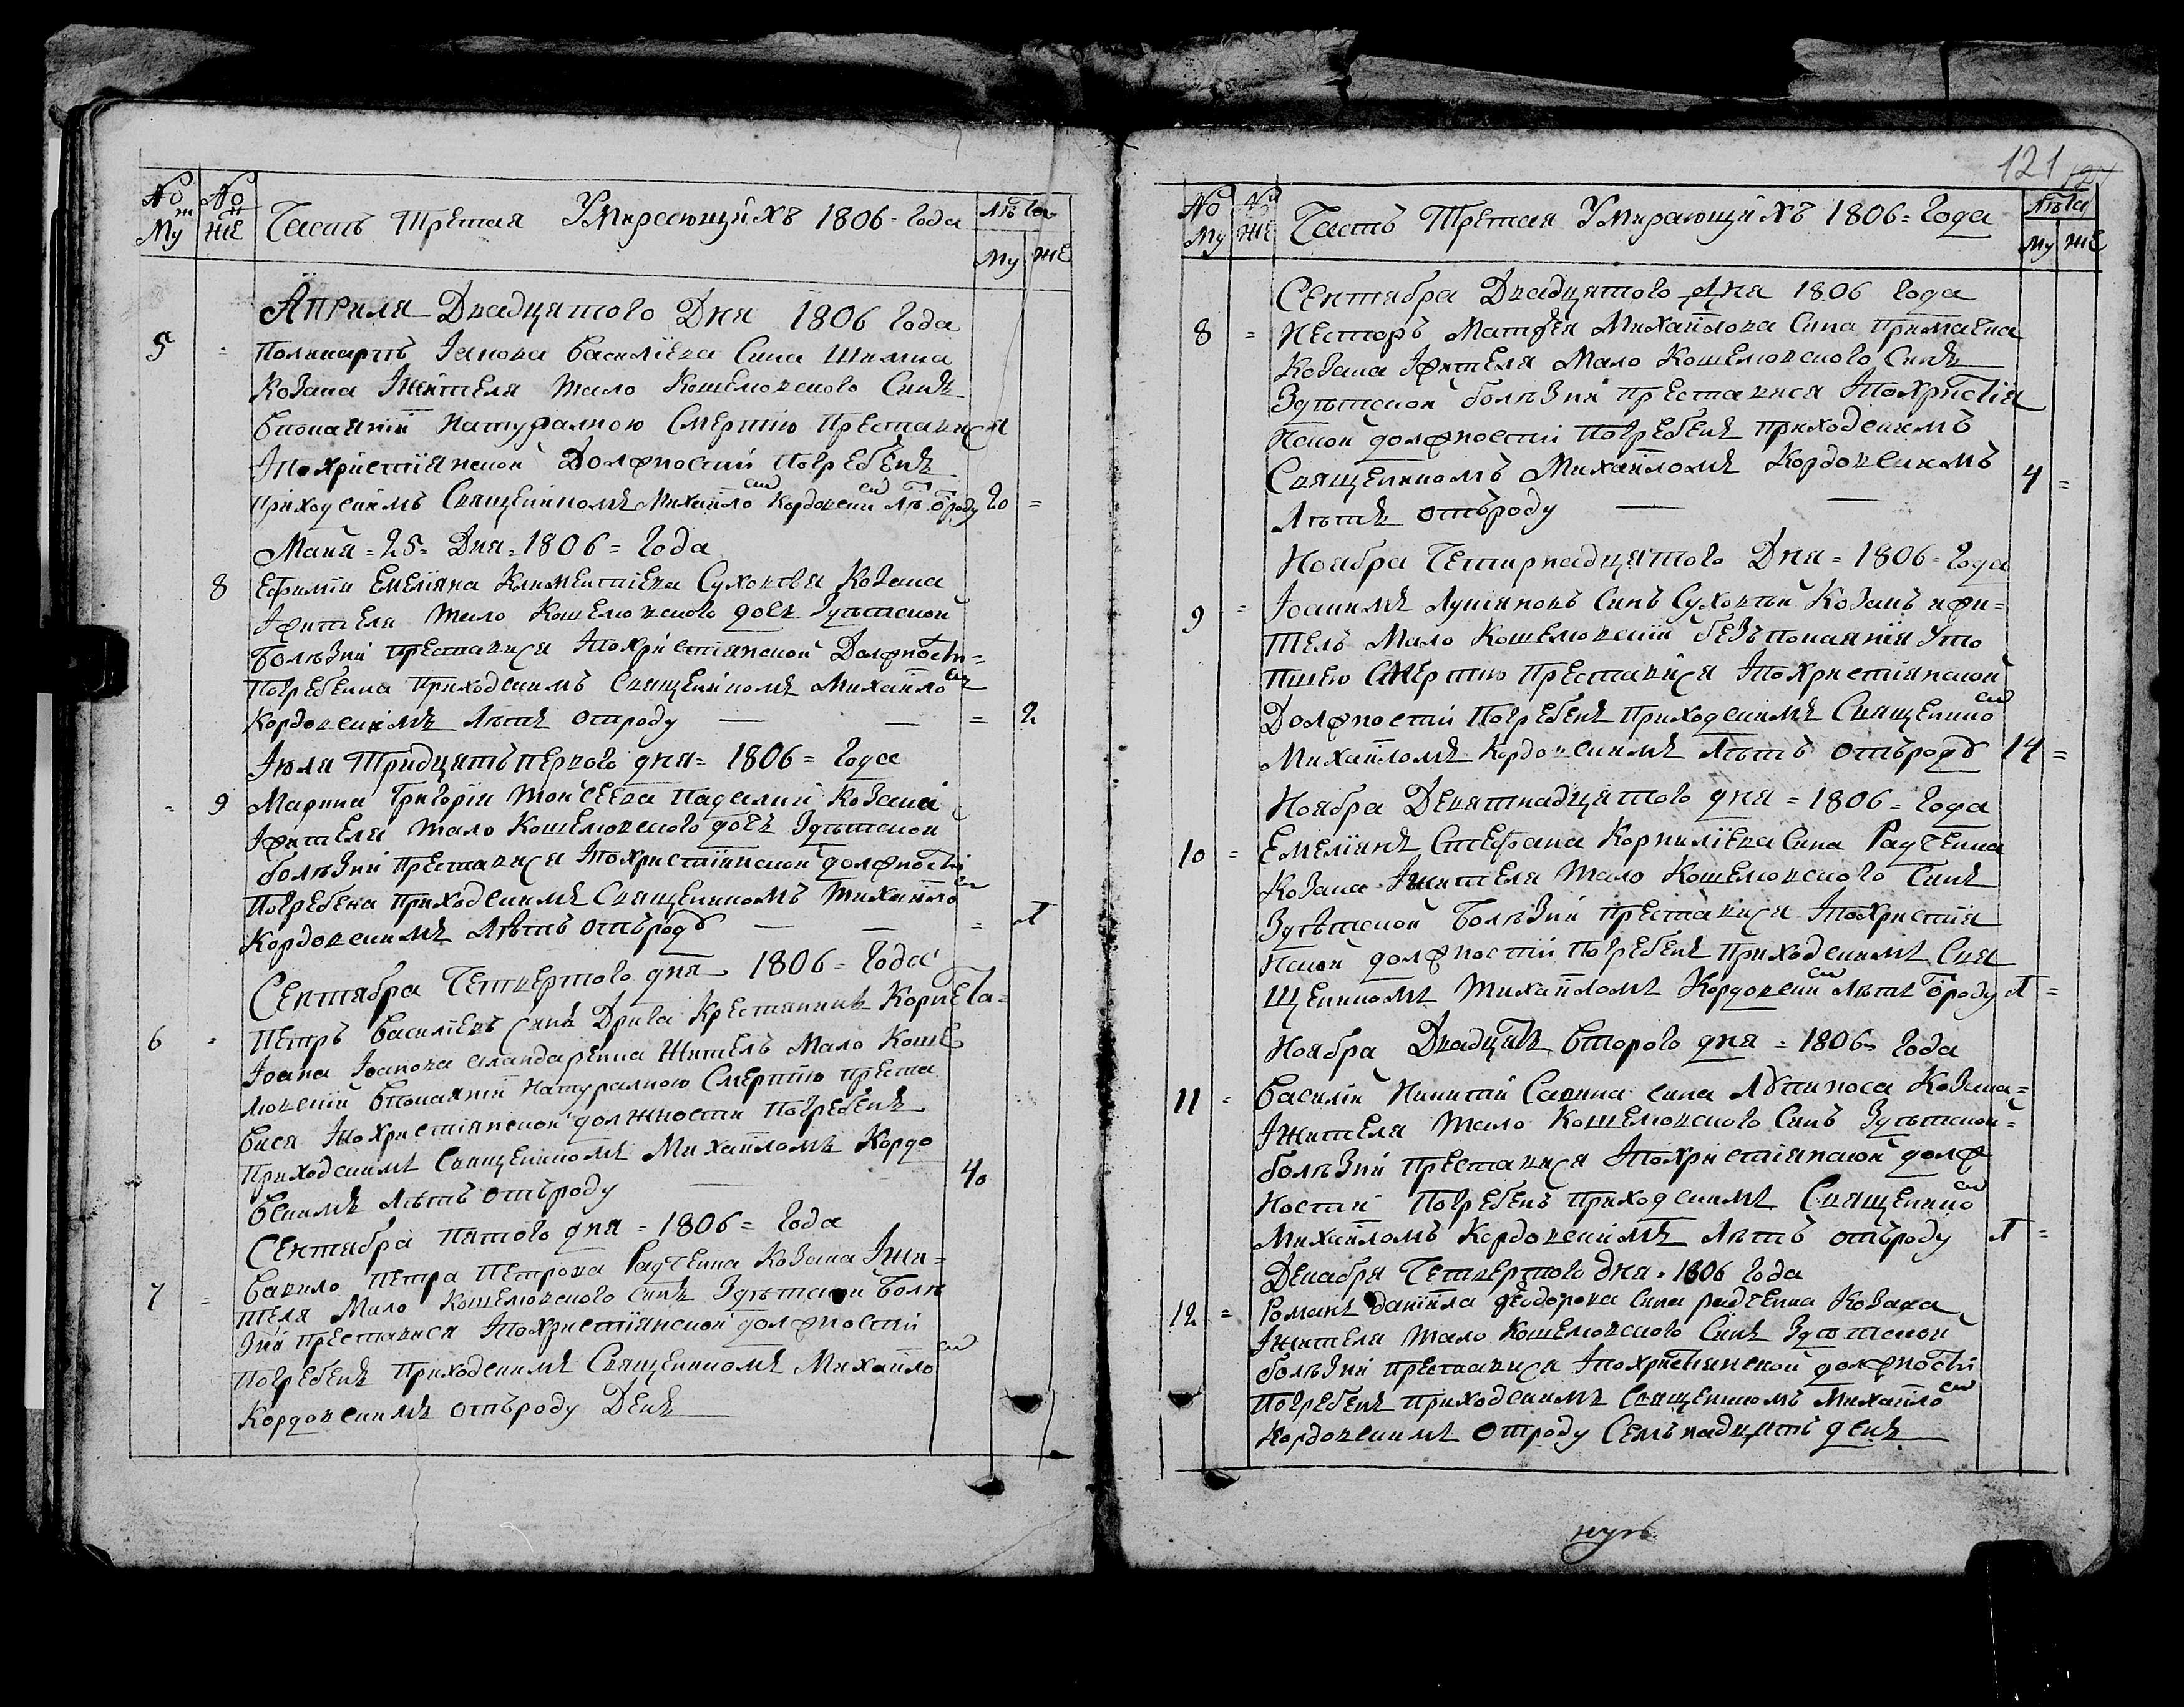 № му № же Часть Третая Умирающихъ 1806 года Лѣта му же
Априля Двадцятого Дня 1806 года
5 = Поликарпъ Іанова Василіева Сина Шимка
Козака Іжителя Мало Кошелювского Синъ
Впокаяніи Натуралною Смертію Преставися
Іпохристіянской Должности Погребенъ
Приходскимъ Священникомъ Михайло Кордовски лѣ ѿроду 20 =
Мая = 25 = Дня = 1806 = Года
8 Ефимия Емеліяна Климентіева Сухов Козака
Іжителя Мало Кошелювского дочь Здѣтской
Болѣзни преставися Іпохристіянской Должности =
Погребенна Приходскимъ Священикомъ Михайло
Кордовскимъ Лѣтъ отроду — — = 2
Іюля Тридцять первого дня = 1806 = Года
= 9 Марина Григорія Мойсеева Козака
Іжителя Мало Кошелювского дочь Здѣтской
болѣзни преставися Іпохристіянской должности
Погребена приходскимъ Священникомъ Михайло
Кордовскимъ Лѣтъ отъроду — — = 1
Сентября Четвертого дня 1806 = Года
6 = Петръ Василіевъ Синъ Дрига Крестянинъ Корнета =
Іоана Іоанова Жителъ Мало Коше
лювскій Впокаяніи Натуралною Смертію преста
вися Іпохристіянской должности Погребенъ
Приходскимъ Священикомъ Михайломъ Кордо
вскимъ Лѣтъ отъроду — 40
Сентября пятого дня = 1806 = Года
7 = Вавило Петра Петрова Радченка Козака Іжи =
теля Мало Кошелювского синъ Здѣтской Болѣ
зни преставися Іпохристіянской должности
Погребенъ Приходскимъ Священникомъ Михайло
Кордовскимъ отъроду Денъ
121
№ му № же Часть Третая Умирающихъ 1806 = Года Лѣта му же
Сентября Двадцятого Дня 1806 Года
8 = Несторъ Матфея Михайлова Сина Примаченка
Козака Іжителя Мало Кошелювского Синъ
Здѣтской болѣзни преставися Іпохристія
нской должности погребенъ приходскимъ
Священикомъ Михайломъ Кордовскимъ
Лѣтъ отъроду — — 4 =
Ноября Четирнадцятого Дня = 1806 = Года
9 = Іоакимъ Лукяновъ Синъ Сухов Козакъ ижи =
телъ Мало Кошелювскій безъ покаянія Уто
пшею Смертію Преставися Іпохристіянской
Должности Погребенъ Приходскимъ Священико
Михайломъ Кордовскимъ Лѣтъ отъроду 14 =
Ноября Девятнадцятого дня = 1806 = Года
10 = Емеліянъ Стефана Корниліева Сина Радченка
Козака Іжителя Мало Кошелювского Синъ
Здѣтской Болѣзни преставися Іпохристія
нской должности Погребенъ приходскимъ Свя
щеникомъ Михайломъ Кордовски Лѣтъ ѿроду 1 =
Ноября Двадцять Второго дня = 1806 = Года
11 = Василій Никити Савина сина Козака =
Іжителя Мало Кошелювского Синъ Здѣтской =
болѣзни преставися Іпохристіянской долж
ности Погребенъ приходскимъ Священико
Михайломъ Кордовскимъ Лѣтъ отъроду 1 =
Декабря Четвертого дня = 1806 Года
12 = Романъ Данїила Феодорова сина Радченка Козака
Іжителя Мало Кошелювского Синъ Здѣтской
болѣзни преставися Іпохристіянской должности
Погребенъ приходскимъ Священикомъ Михайло
Кордовскимъ Отроду Семънадцять денъ